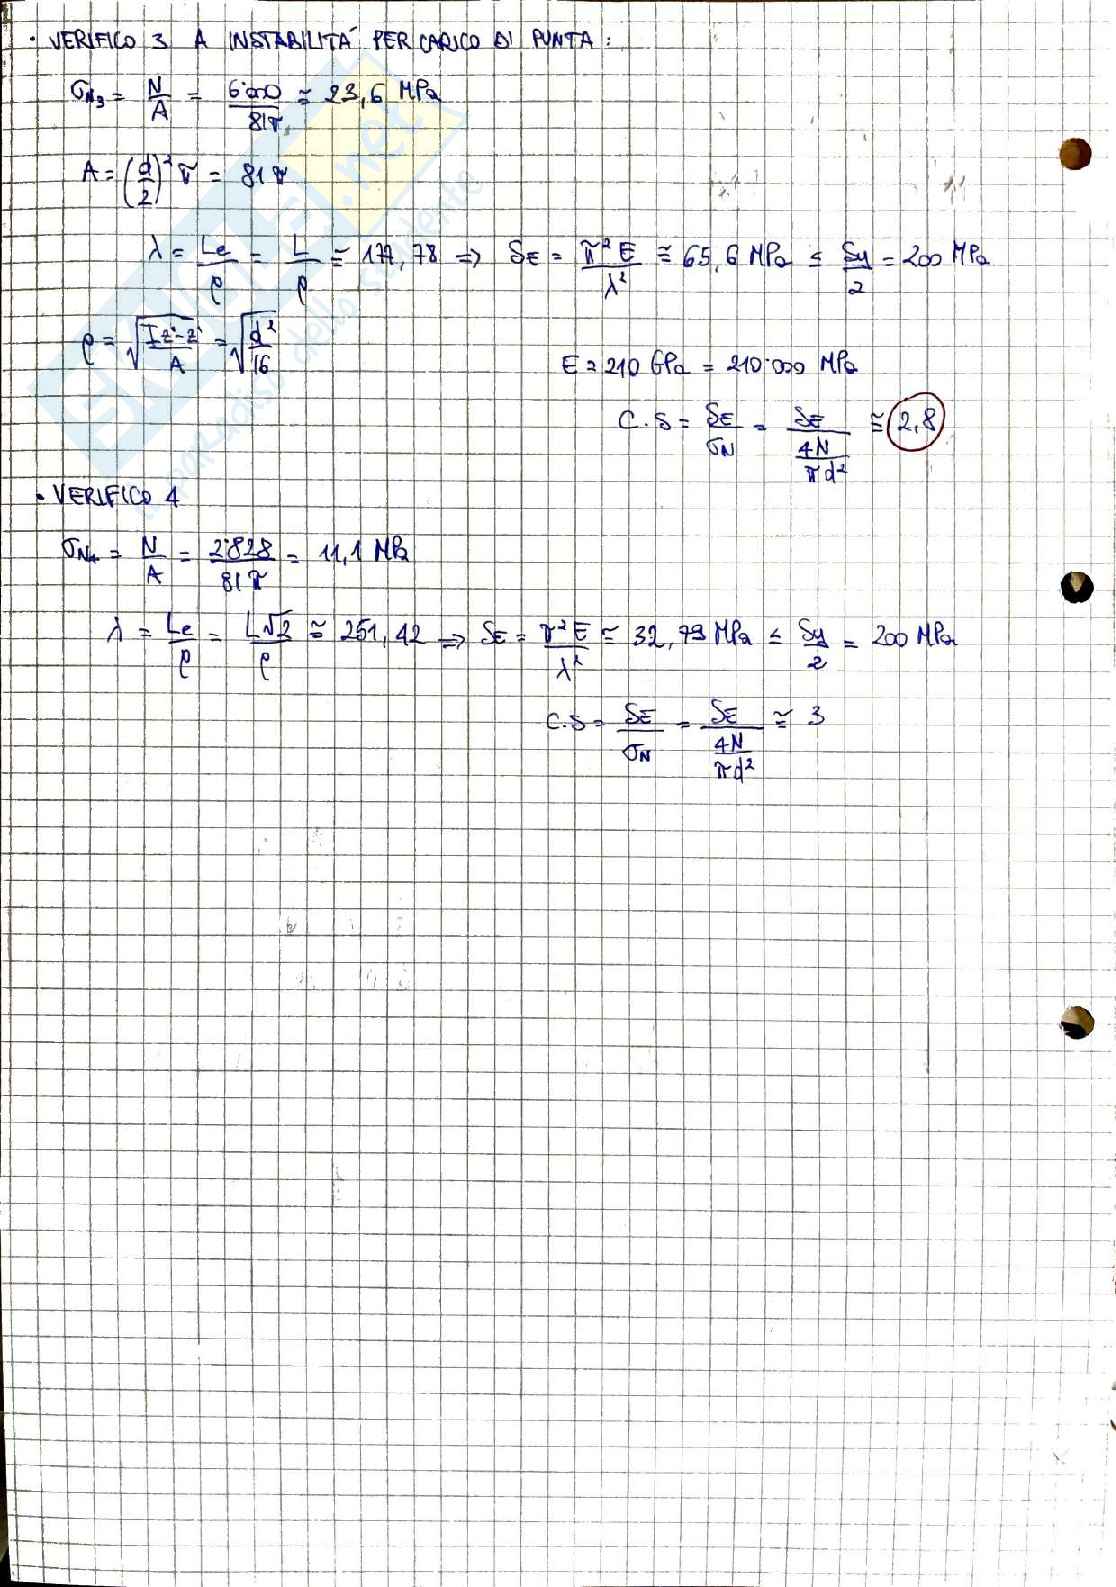 · VERIFICO 3 A INSTABILITÀ PER CARICO DI PUNTA:
σN₃ = N/A = 6'000/81π ≅ 23,6 MPa
A = (d/2)² π = 81π
λ = Le/ρ = L/ρ ≅ 177,78 ⇒ SE = π²E/λ² ≅ 65,6 MPa ≤ Sy/2 = 200 MPa
ρ = √(Iz'-z'/A) = √(d²/16)
E = 210 GPa = 210'000 MPa
C.S = SE/σN = SE/(4N/πd²) ≅ 2,8
· VERIFICO 4
σN₄ = N/A = 2'828/81π = 11,1 MPa
λ = Le/ρ = L√2/ρ ≅ 251,42 ⇒ SE = π²E/λ² ≅ 32,79 MPa ≤ Sy/2 = 200 MPa
C.S = SE/σN = SE/(4N/πd²) ≅ 3